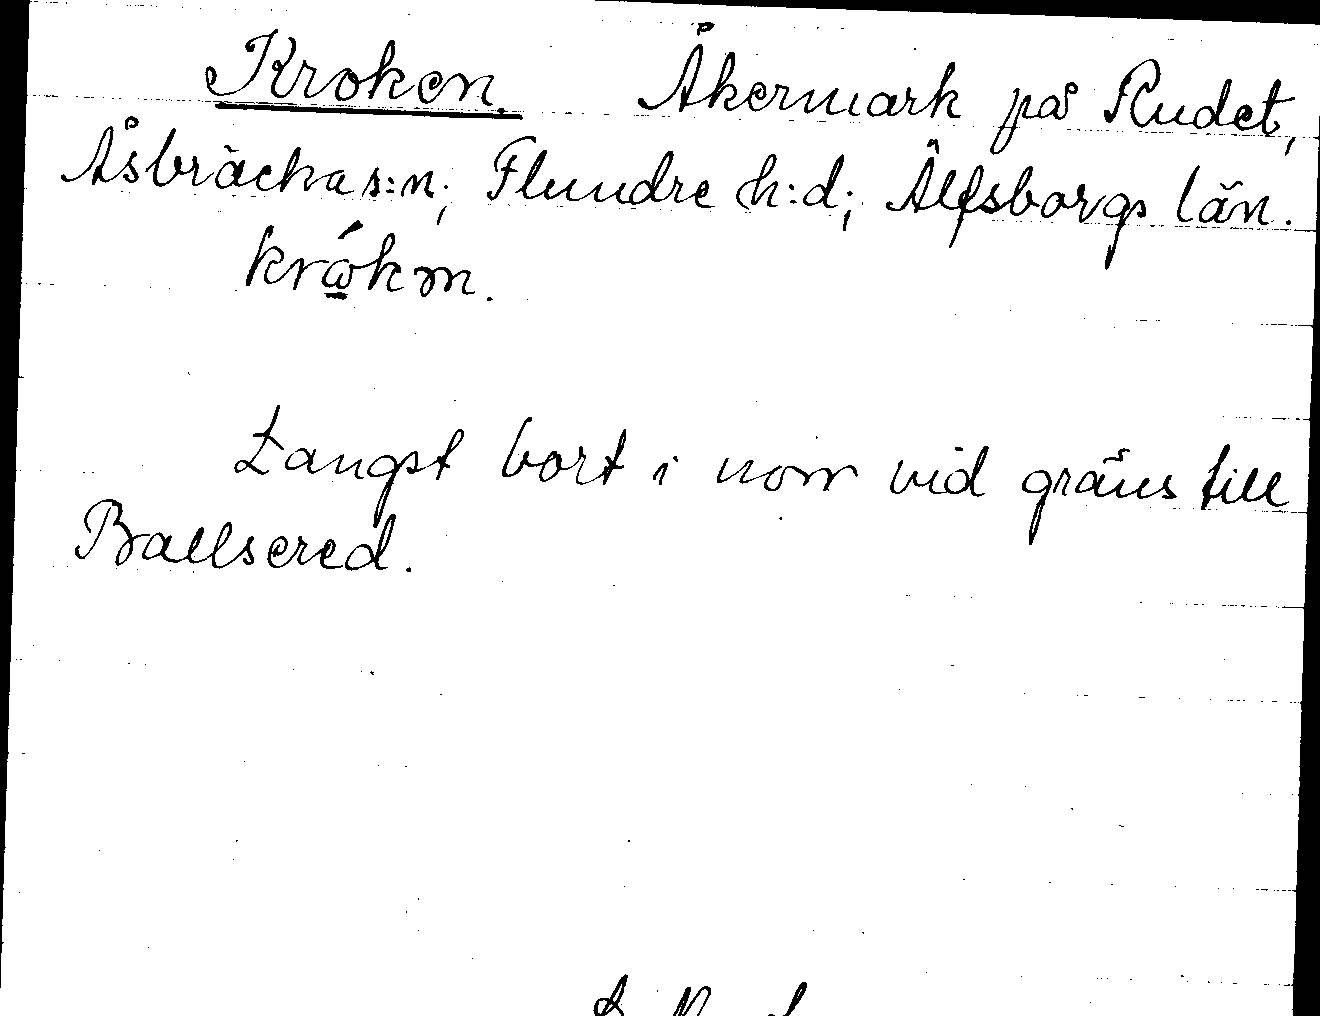 Kroken. Åkermark på Rudet,
Åsbräcka s:n; Flundre h:d; Älfsborgs län.
krωkm.
Längst bort i norr vid gräns till
Ballsered.